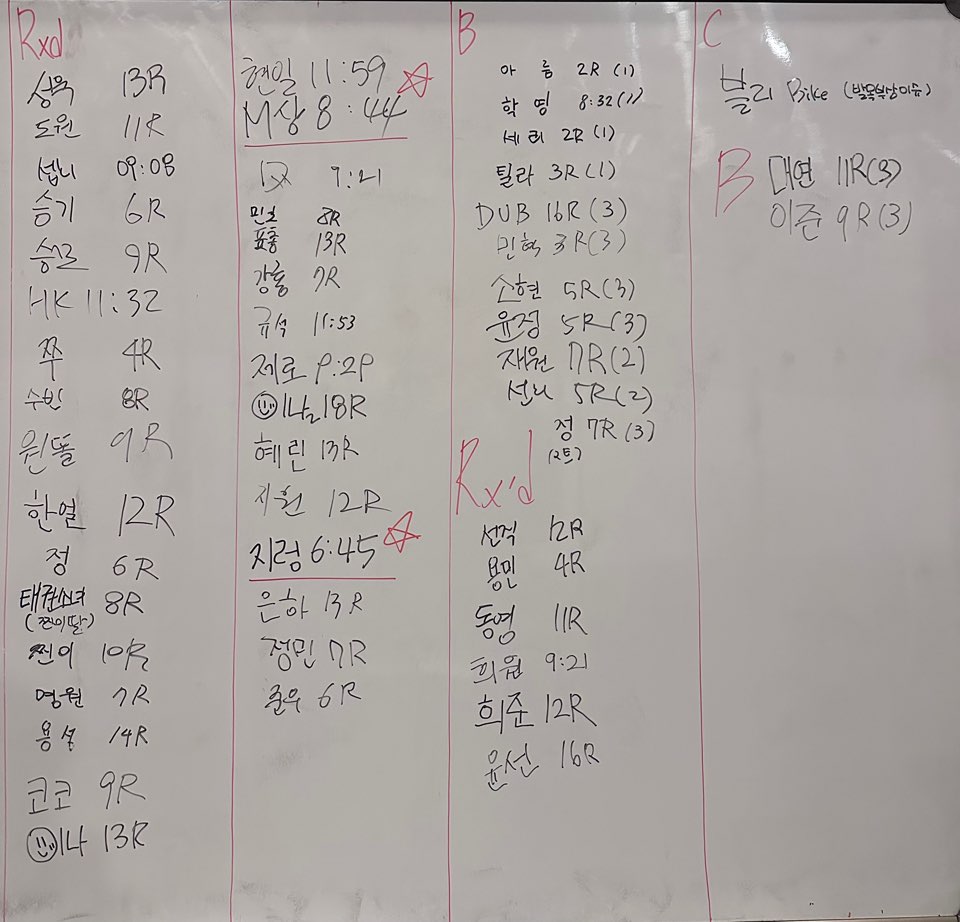 Rxd
성욱 13R
도원 11R
섭니 09:08
승기 6R
9R
HK 11:32
쭈 4R
수빈 8R
원똘 9R
한열 12R
정 6R
태권소녀 8R
(찐이딸)
찐이 10R
영원 7R
용성 14R
코코 9R
이나 13R
현일 11:59
M상 8:44
9:21
민호 8R
표총 13R
강홍 7R
규석 11:53
제로 9:29
18R
혜린 13R
지훤 12R
지렁 6:45
은하 13R
정민 7R
준우 6R
B
아름 2R (1)
학띵 8:32(1)
세리 2R (1)
틸라 3R(1)
DUB 16R (3)
민혁 3R(3)
소현 5R(3)
윤정 5R(3)
재원 7R(2)
선니 5R(2)
정 7R(3)
(2트)
Rx'd
선직 12R
용민 4R
동영 11R
희원 9:21
희준 12R
윤선 16R
C
블리 Bike (발목부상이슈)
B
대연 11R(3)
이준 9R(3)